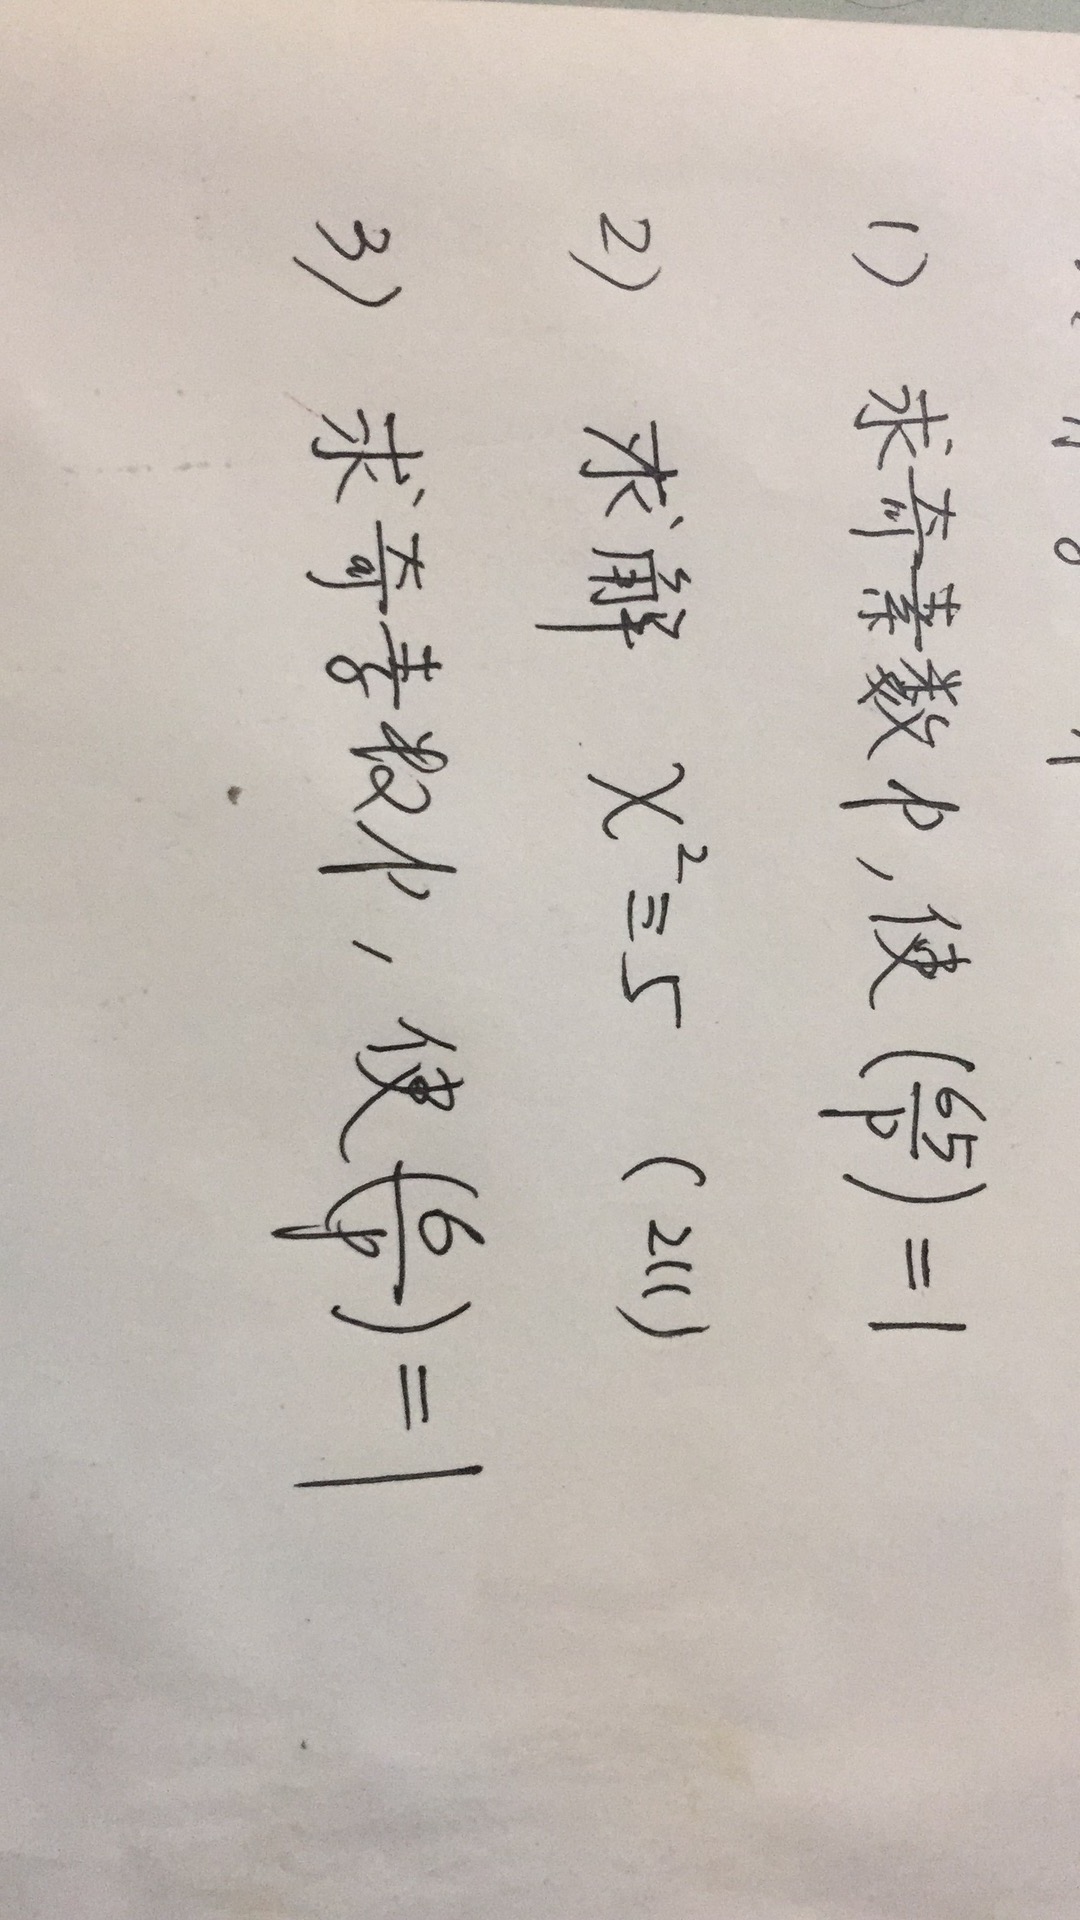 1) 求奇素数p,使(65/p)=1
2) 求解 x²≡5 (211)
3) 求奇素数p,使(6/p)=1